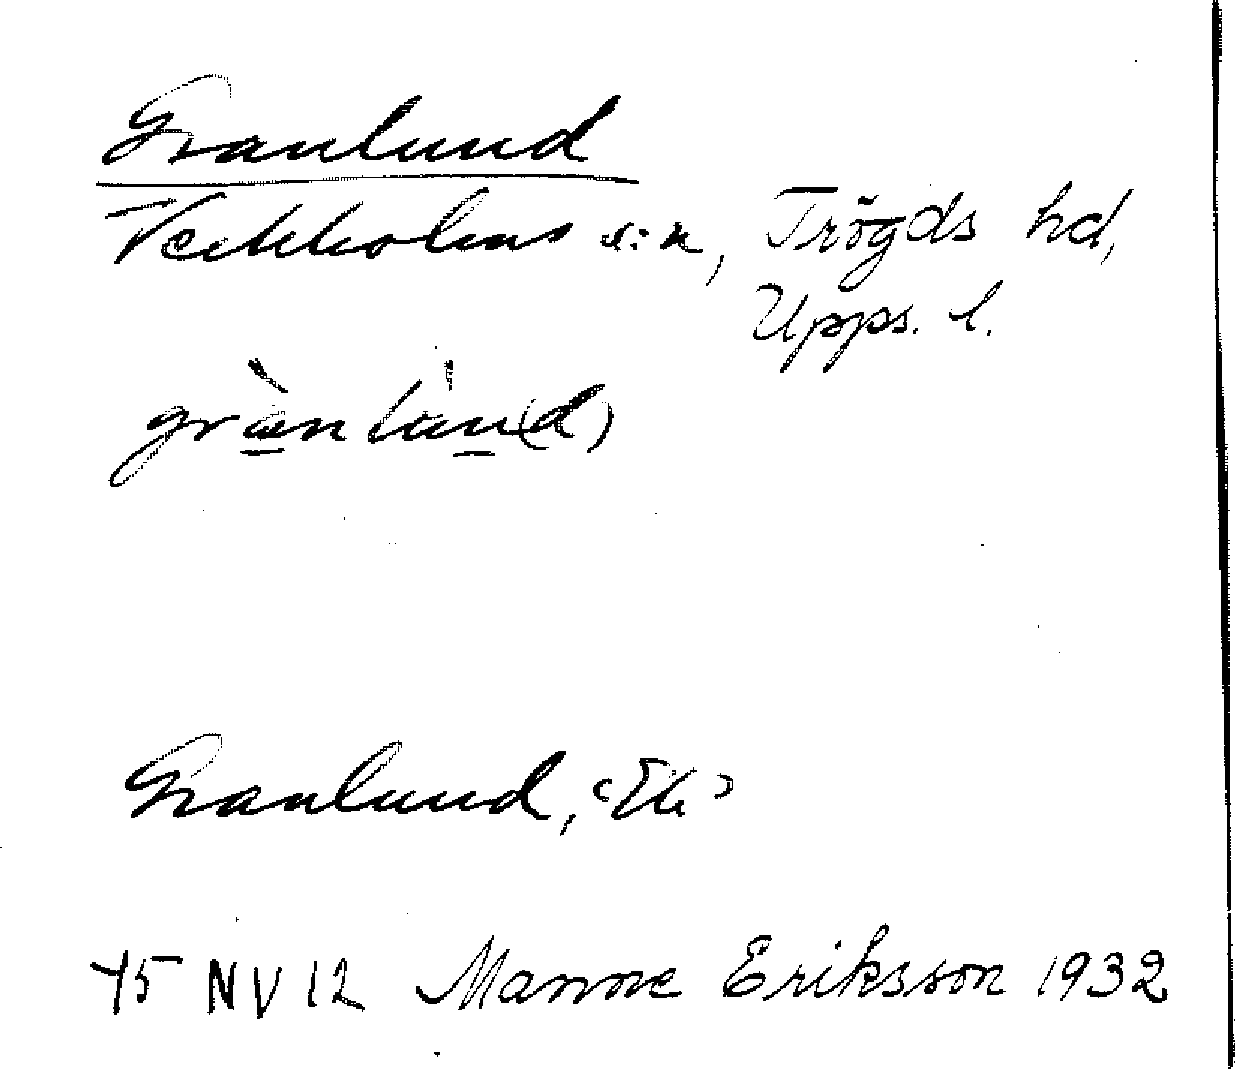 Granlund
Veckholms s:n, Trögds hd,
Upps. l.
Granlund, Ek
75 NV 12 Manne Eriksson 1932